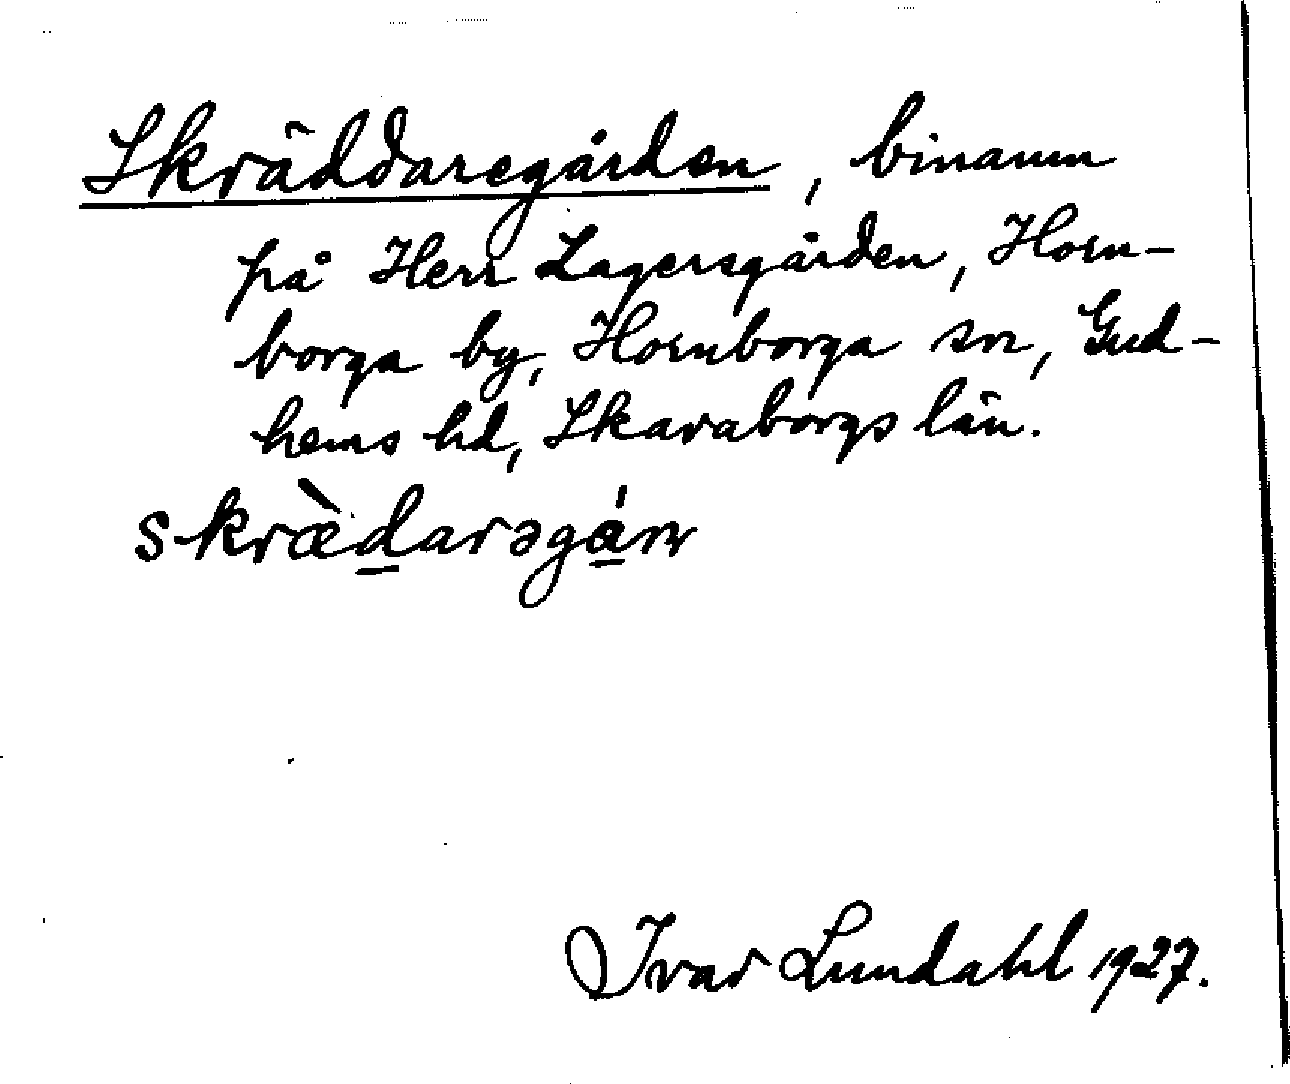 Skräddaregården, binamn
på Herr Lagersgården, Horn-
borga by, Hornborga sn, Gud-
hems hd, Skaraborgs län.
skræ̀d̲arəgá̲n
Ivar Lundahl 1927.